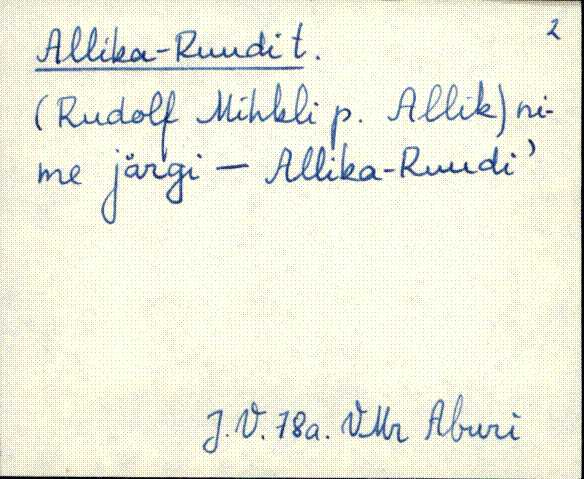 2
Allika-Ruudi t.
(Rudolf Mihkli p. Allik) ni-
me järgi — Allika-Ruudi'
J.V. 78a. VMr Aburi